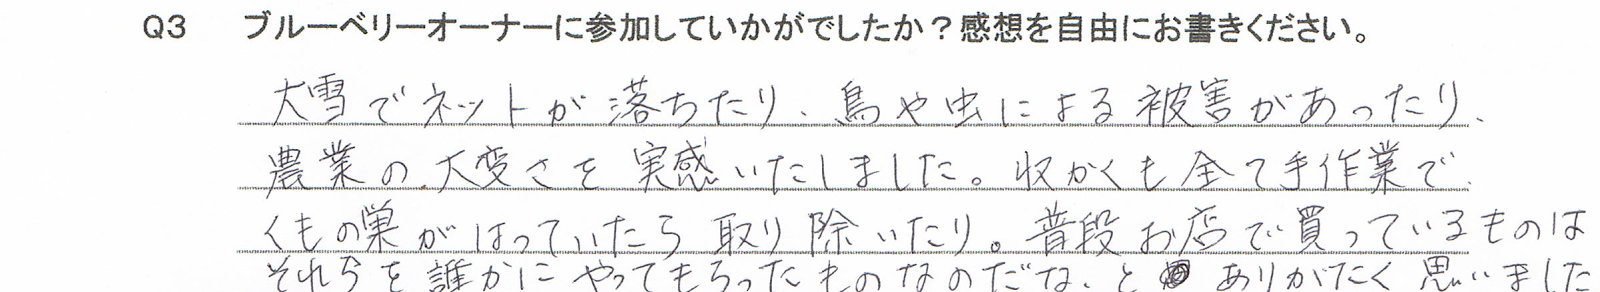 Q3 ブルーベリーオーナーに参加していかがでしたか？感想を自由にお書きください。
大雪でネットが落ちたり、鳥や虫による被害があったり、
農業の大変さを実感いたしました。収かくも全て手作業で、
くもの巣がはっていたら取り除いたり。普段お店で買っているものは
それらを誰かにやってもらったものなのだな、と ありがたく思いました